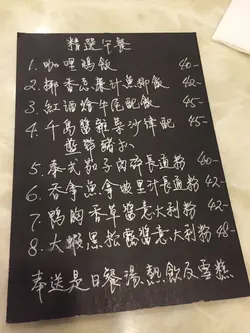 精選午餐
1. 咖哩鷄飯 40-
2. 椰香瓜粟汁魚柳飯 42-
3. 紅酒燴牛尾配飯 45-
4. 千島醬雜菜沙律配 45-
蟹
5. 泰式茄子肉碎長通粉 40-
6. 吞拿魚 汁長通粉 42-
7. 鴨胸香草醬意大利粉 42-
8. 大蝦黑松露醬意大利粉 48-
奉送是日餐湯,熱飲及雪糕